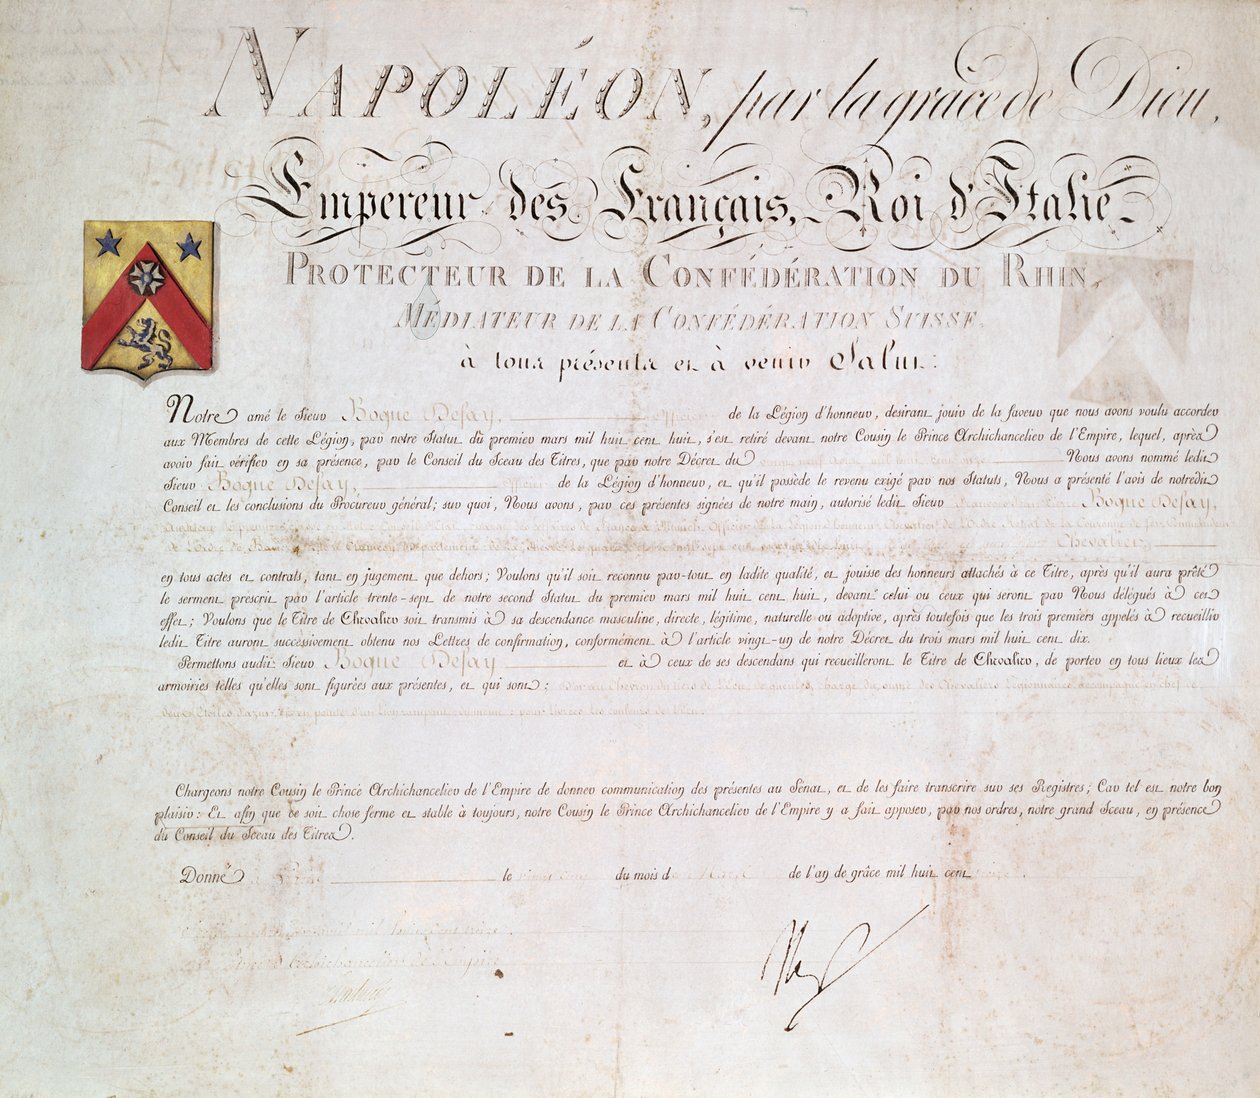 NAPOLÉON, par la grâce de Dieu,
Empereur des Français, Roi d'Italie,
PROTECTEUR DE LA CONFÉDÉRATION DU RHIN,
MÉDIATEUR DE LA CONFÉDÉRATION SUISSE,
à tous présents et à venir Salut:
Notre amé le Sieur Bogne Defay, officier de la Légion d'honneur, desirant jouir de la faveur que nous avons voulu accorder
aux Membres de cette Légion, par notre Statut du premier mars mil huit cent huit, s'est retiré devant notre Cousin le Prince Archichancelier de l'Empire, lequel, après
avoir fait vérifier en sa présence, par le Conseil du Sceau des Titres, que par notre Décret du Nous avons nommé ledit
Sieur Bogne Defay, officier de la Légion d'honneur, et qu'il possède le revenu exigé par nos Statuts, Nous a présenté l'avis de notredit
Conseil et les conclusions du Procureur général; sur quoi, Nous avons, par ces présentes signées de notre main, autorisé ledit Sieur Bogne Defay,
Munich, Officier de la Légion d'honneur, Chevalier de l'Ordre Royal de la Couronne de fer, Commandeur
de l'Ordre de Chevalier,
en tous actes et contrats, tant en jugement que dehors; Voulons qu'il soit reconnu par-tout en ladite qualité, et jouisse des honneurs attachés à ce Titre, après qu'il aura prêté
le serment prescrit par l'article trente-sept de notre second Statut du premier mars mil huit cent huit, devant celui ou ceux qui seront par Nous délégués à cet
effet; Voulons que le Titre de Chevalier soit transmis à sa descendance masculine, directe, légitime, naturelle ou adoptive, après toutefois que les trois premiers appelés à recueillir
ledit Titre auront successivement obtenu nos Lettres de confirmation, conformément à l'article vingt-un de notre Décret du trois mars mil huit cent dix.
Permettons audit Sieur Bogne Defay et à ceux de ses descendans qui recueilleront le Titre de Chevalier, de porter en tous lieux les
armoiries telles qu'elles sont figurées aux présentes, et qui sont: D'or au Chevron de gueules, chargé du signe des Chevaliers Légionnaires accompagné en chef de
deux étoiles d'azur, et en pointe d'un lion rampant du même; pour livrées les couleurs de l'écu.
Chargeons notre Cousin le Prince Archichancelier de l'Empire de donner communication des présentes au Sénat, et de les faire transcrire sur ses Registres; Car tel est notre bon
plaisir: Et afin que ce soit chose ferme et stable à toujours, notre Cousin le Prince Archichancelier de l'Empire y a fait apposer, par nos ordres, notre grand Sceau, en présence
du Conseil du Sceau des Titres.
Donné le du mois de Mars de l'an de grâce mil huit cent
mil huit cent treize.
Prince Archichancelier de l'Empire